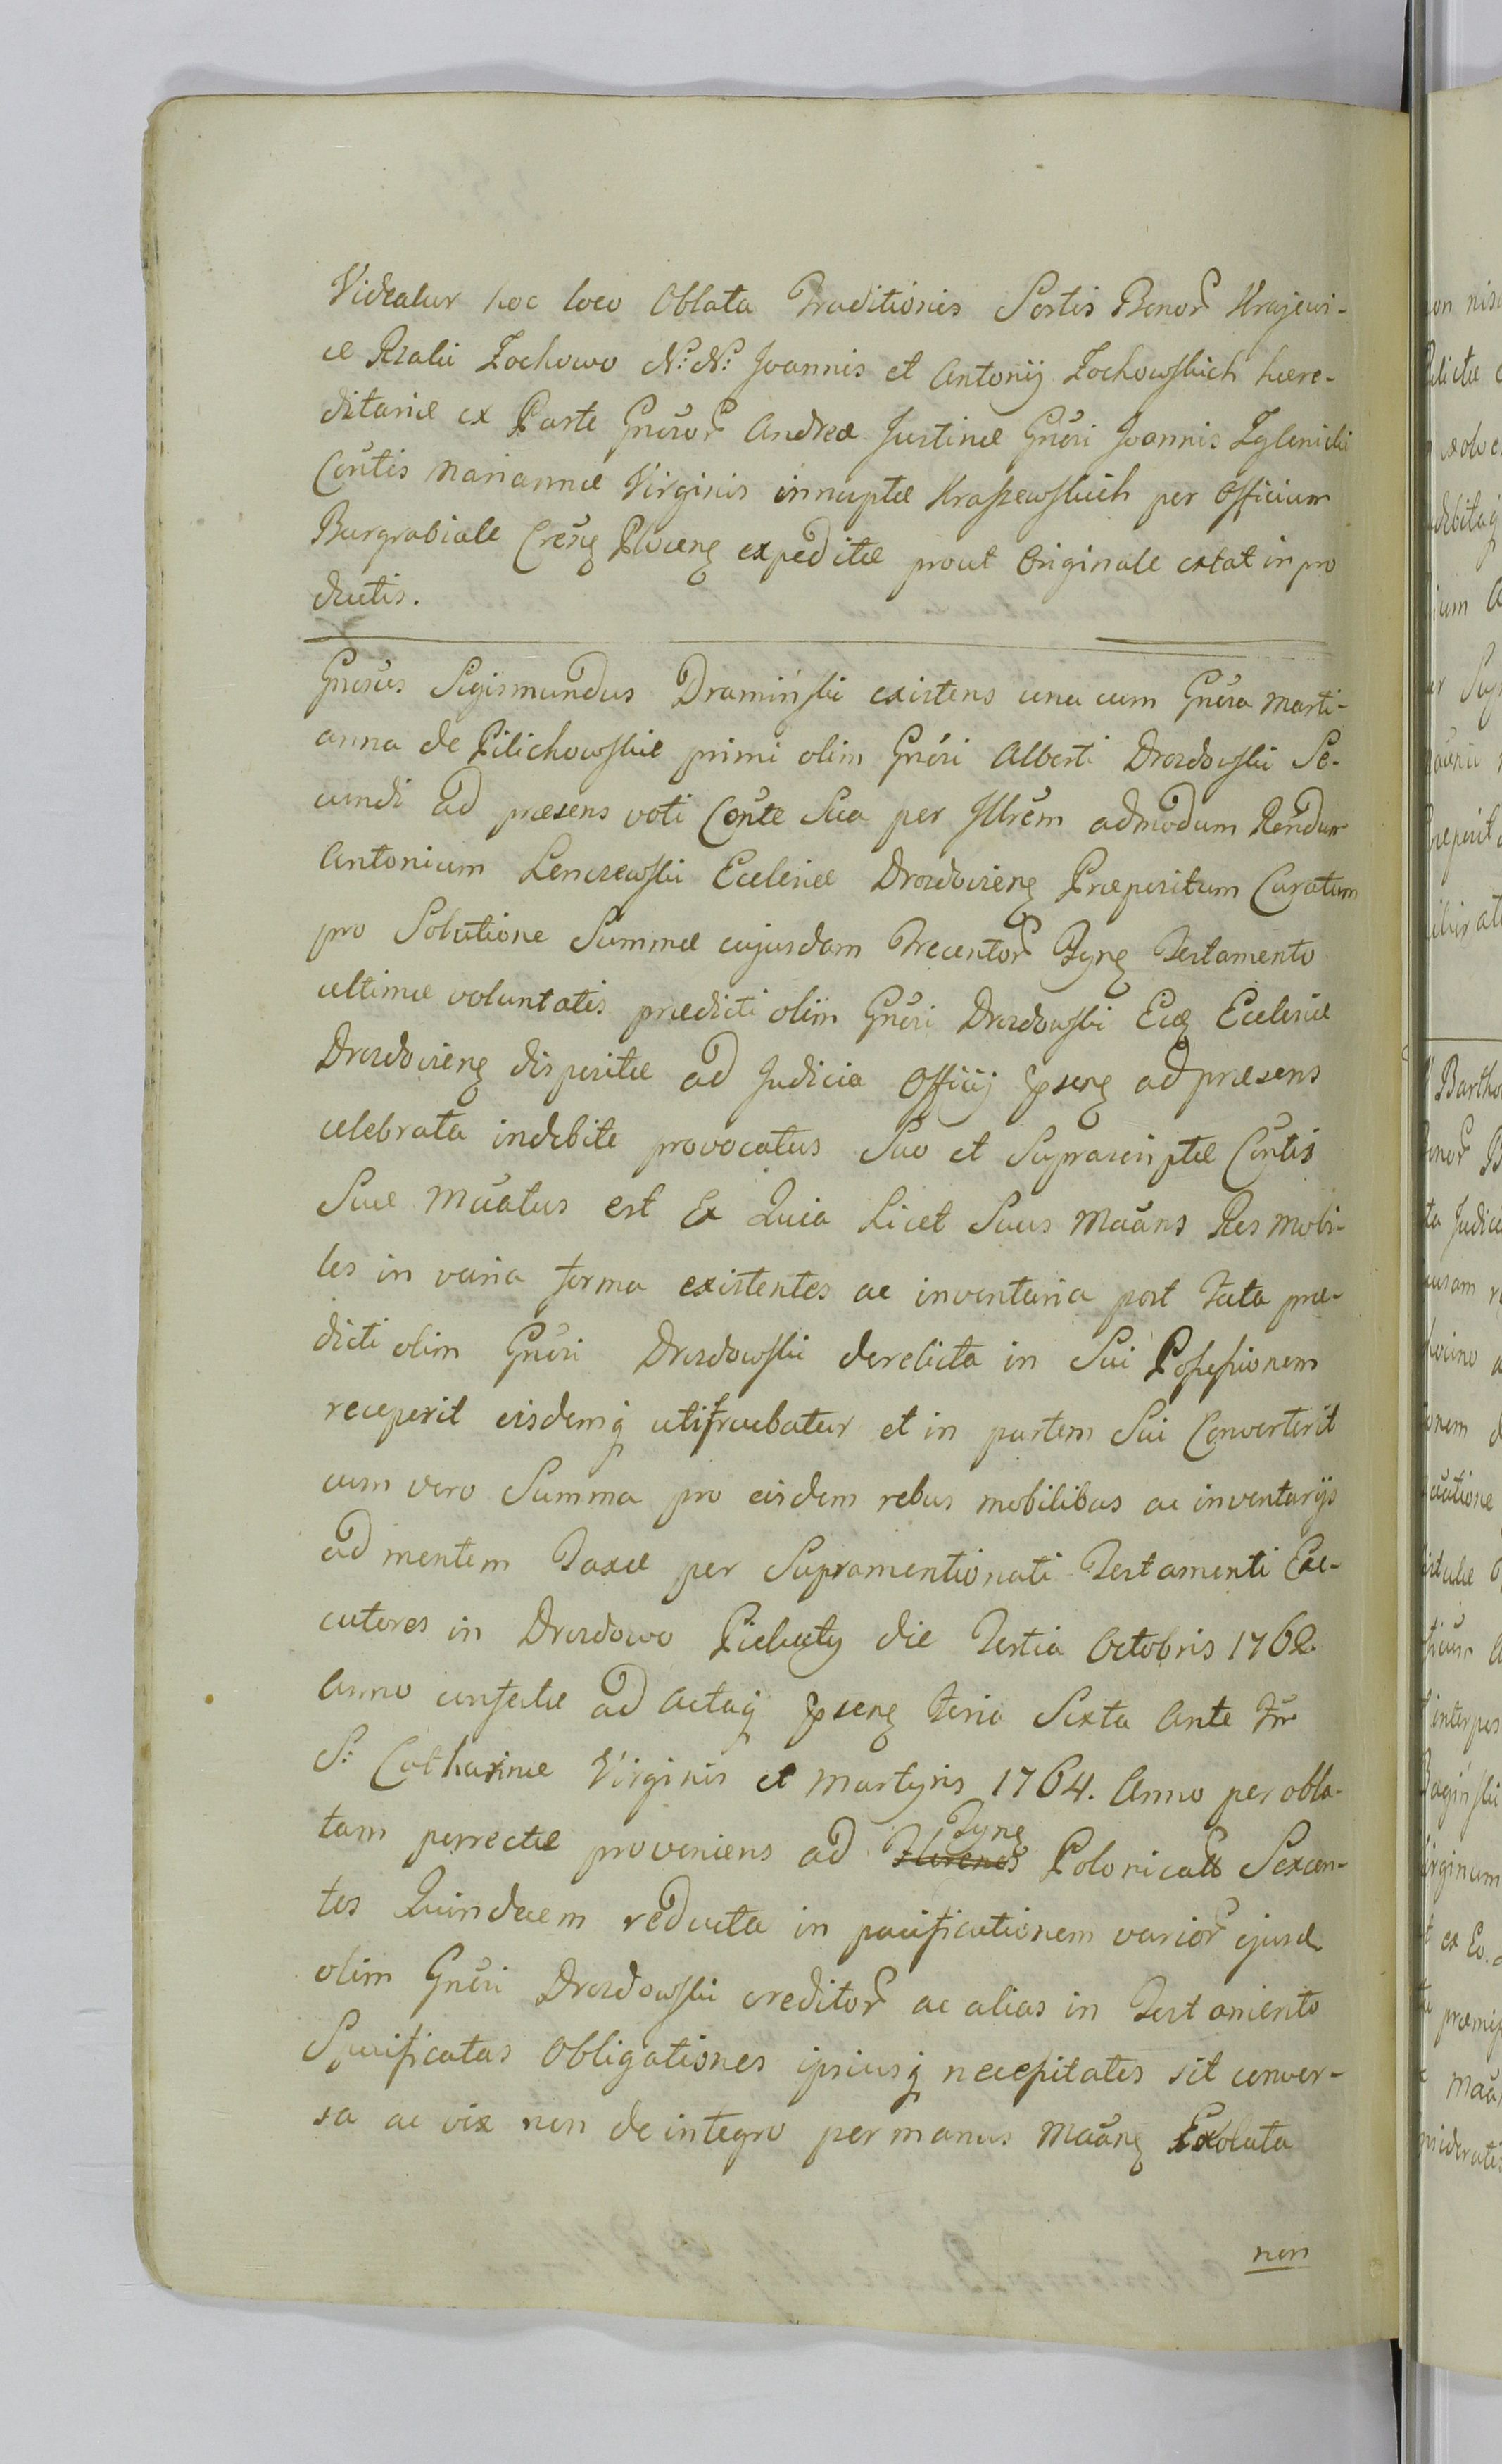 Videatur hoc loco Oblata Traditionis Sortis Bonor Krajewi-
ce Rzaki Zochowo N: N: Joannis et Antonij Zochowskich hære-
ditariæ ex Parte Gnosor Andreæ Justinæ Gnosi Joannis Zglenicki
Contis Mariannæ Virginis innuptæ Kraszewskich per Officium
Burgrabiale Creñ Plocen expeditæ prout Originale extat in pro
ductis.
Gnosus Sigismundus Dramiński existens una cum Gnosa Marti-
anna de Pilichowskie primi olim Gnosi Alberti Drozdowski Se-
cundi ad præsens voti Conte Sua per Illrem admodum Rendum
Antonium Lenczewski Ecclesiæ Drozdoviens Præpositum Curatum
pro Solutione Summæ cujusdam Trecentor Tyn Testamento
ultimæ voluntatis prædicti olim Gnosi Drozdowski Ecclesiæ
Drozdoviens dispositæ ad Judicia Officij pseñ ad præsens
celebrata indebite provocatus Suo et Suprascriptæ Contis
Suæ Maatus est Ex Quia Licet Suus Maans Res mobi-
les in varia forma existentes ac inventaria post fata præ-
dicti olim Gnosi Drozdowski derelicta in Sui Possessionem
receperit eisdemq utifruebatur et in partem Sui Converterit
cum vero Summa pro eisdem rebus mobilibus ac inventarijs
ad mentem Taxæ per Supramentionati Testamenti Exe-
cutores in Drozdowo Piekuty die Tertia Octobris 1762
Anno confectæ ad Actaq pseñ Feria Sexta Ante Fm
S: Catharinæ Virginis et Martyris 1764. Anno per obla-
tam porrectæ proveniens ad Tyn Polonicales Sexcen-
tos Quindecem reducta in pacificationem varior ejusd
olim Gnosi Drozdowski creditor ac alias in Testamento
Specificatas Obligationes ipsiusq necessitates sit conver-
sa ac vix non de integro per manus Maan Exoluta
non